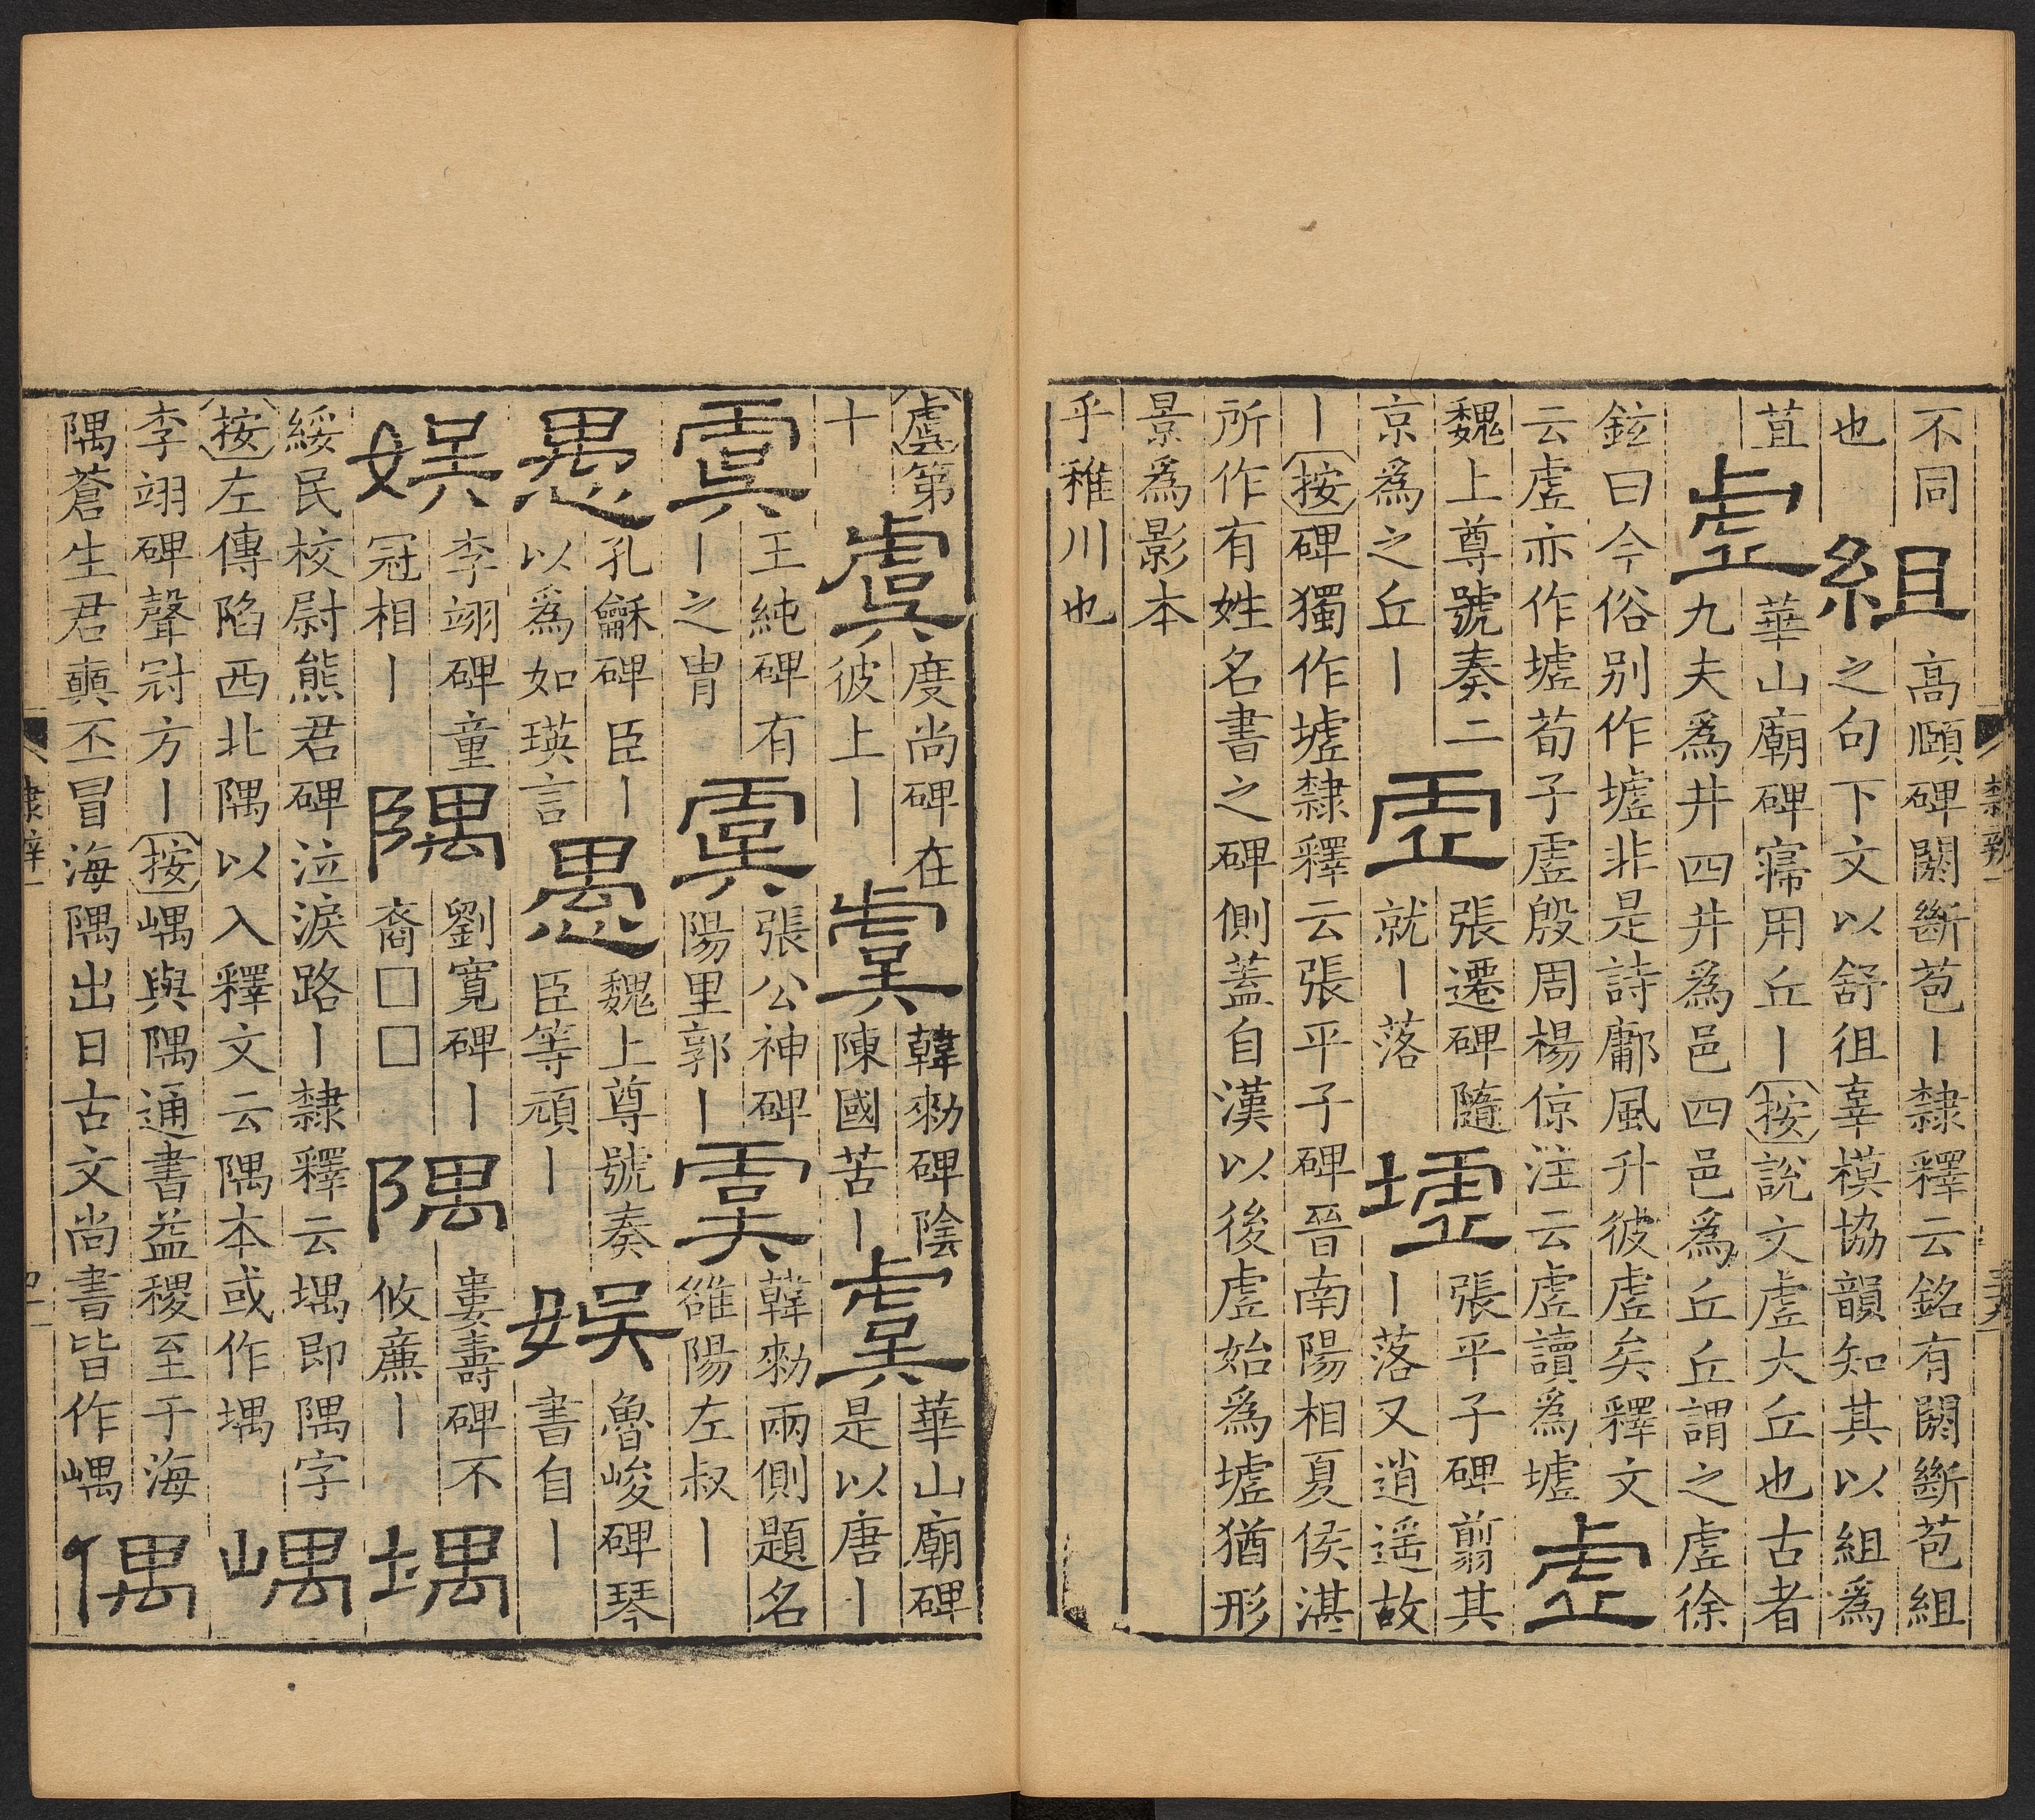 不同 組 高頤碑闕斷苞丨隸釋云銘有闕斷苞組
也 之句下文以舒徂辜模協韻知其以組爲
苴 虛 華山廟碑用丘丨按說文虛大丘也古者
九夫爲井四井爲邑四邑爲丘丘謂之虛徐
鉉曰今俗别作墟非是詩鄘風升彼虛矣釋文
云虛亦作墟荀子虛殷周楊倞注云虛讀爲墟 虛
魏上尊號奏二 虛 張遷碑隨 墟 張平子碑翦其
京爲之丘丨 就丨落 丨落又逍遥故
丨按碑獨作墟隸釋云張平子碑晉南陽相夏侯湛
所作有姓名書之碑側蓋自漢以後虛始爲墟猶形
景爲影本
乎稚川也
隸辨一
虞第 虞 度尚碑在 虞 韓勑碑陰 虞 華山廟碑
十 彼上丨 陳國苦丨 是以唐丨
虞 王純碑有 虞 張公神碑 虞 韓勑兩側題名
丨之胄 陽里郭丨 雒陽左叔丨
愚 孔龢碑臣丨 愚 魏上尊號奏 娛 魯峻碑琴
以爲如瑛言 臣等頑丨 書自丨
娛 李翊碑童 隅 劉寬碑丨 隅 婁壽碑不 堣
冠相丨 裔□□ 攸廉丨
綏民校尉熊君碑泣淚路丨隸釋云堣即隅字
按左傳陷西北隅以入釋文云隅本或作堣 嵎
李翊碑聲冠方丨按嵎與隅通書益稷至于海 偶
隅蒼生君奭丕冒海隅出日古文尚書皆作嵎